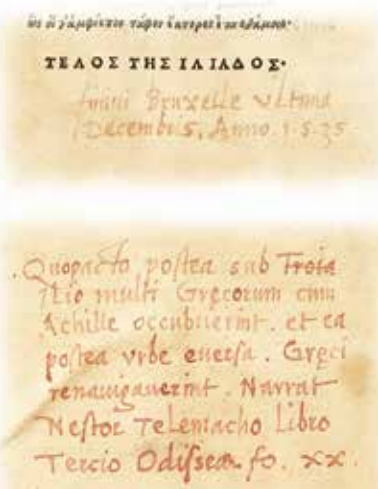 ὣς οἵ γ᾽ ἀμφίεπον τάφον ἕκτορος ἱπποδάμοιο·
ΤΕΛΟΣ ΤΗΣ ΙΛΙΑΔΟΣ·
finivi Bruxelle ultima
Decembris, Anno 1.5.35
.Quopacto postea sub Troia
Ilio multi Gręcorum cum
Achille occubuerint. et ea
postea vrbe euersa. Gręci
renauigauerint. Narrat
Nestor Telemacho Libro
Tercio Odisseæ fo. xx.